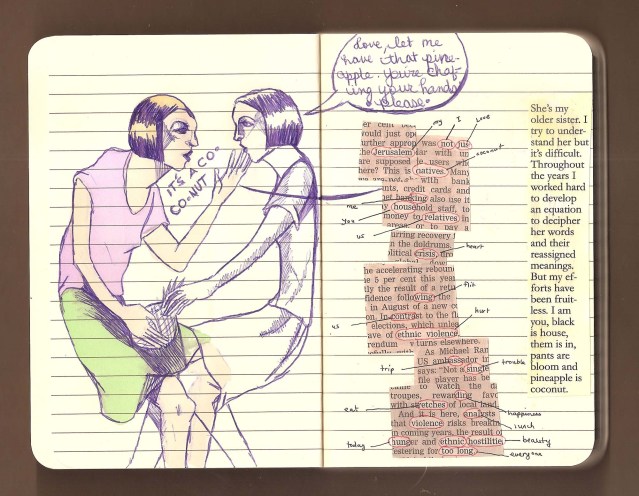 Love, let me
have that pine-
apple. you're chaf-
ing your hands
please.
IT'S A CO-
CO-NUT
my
I
love
coconut
me
you
us
heart
flik
hurt
us
trip
trouble
eat
happiness
lunch
today
beauty
everyone
would just
urther approp was not jus
the Jerusalem
are supposed
users wh
here? This is natives. Man
with bank
unts, credit cards and
also use it
household staff, to
money to relatives in
or to pay a
urring recovery
n the doldrums.
litical crisis,
he accelerating rebound
5 per cent this year
tly the result of a retu
fidence following the
in August of a new
on. In contrast to the
elections, which
ave of ethnic violence.
rendum
turns elsewhere.
As Michael Ran
US ambassador
says: "Not a single
file player has be
to watch the
troupes, rewarding favo
with stretches of local land
And it is here, analysts
that violence risks breakin
in coming years, the result of
hunger and ethnic hostilitie
estering for too long.
She's my
older sister. I
try to under-
stand her but
it's difficult.
Throughout
the years I
worked hard
to develop
an equation
to decipher
her words
and their
reassigned
meanings.
But my ef-
forts have
been fruit-
less. I am
you, black
is house,
them is in,
pants are
bloom and
pineapple is
coconut.